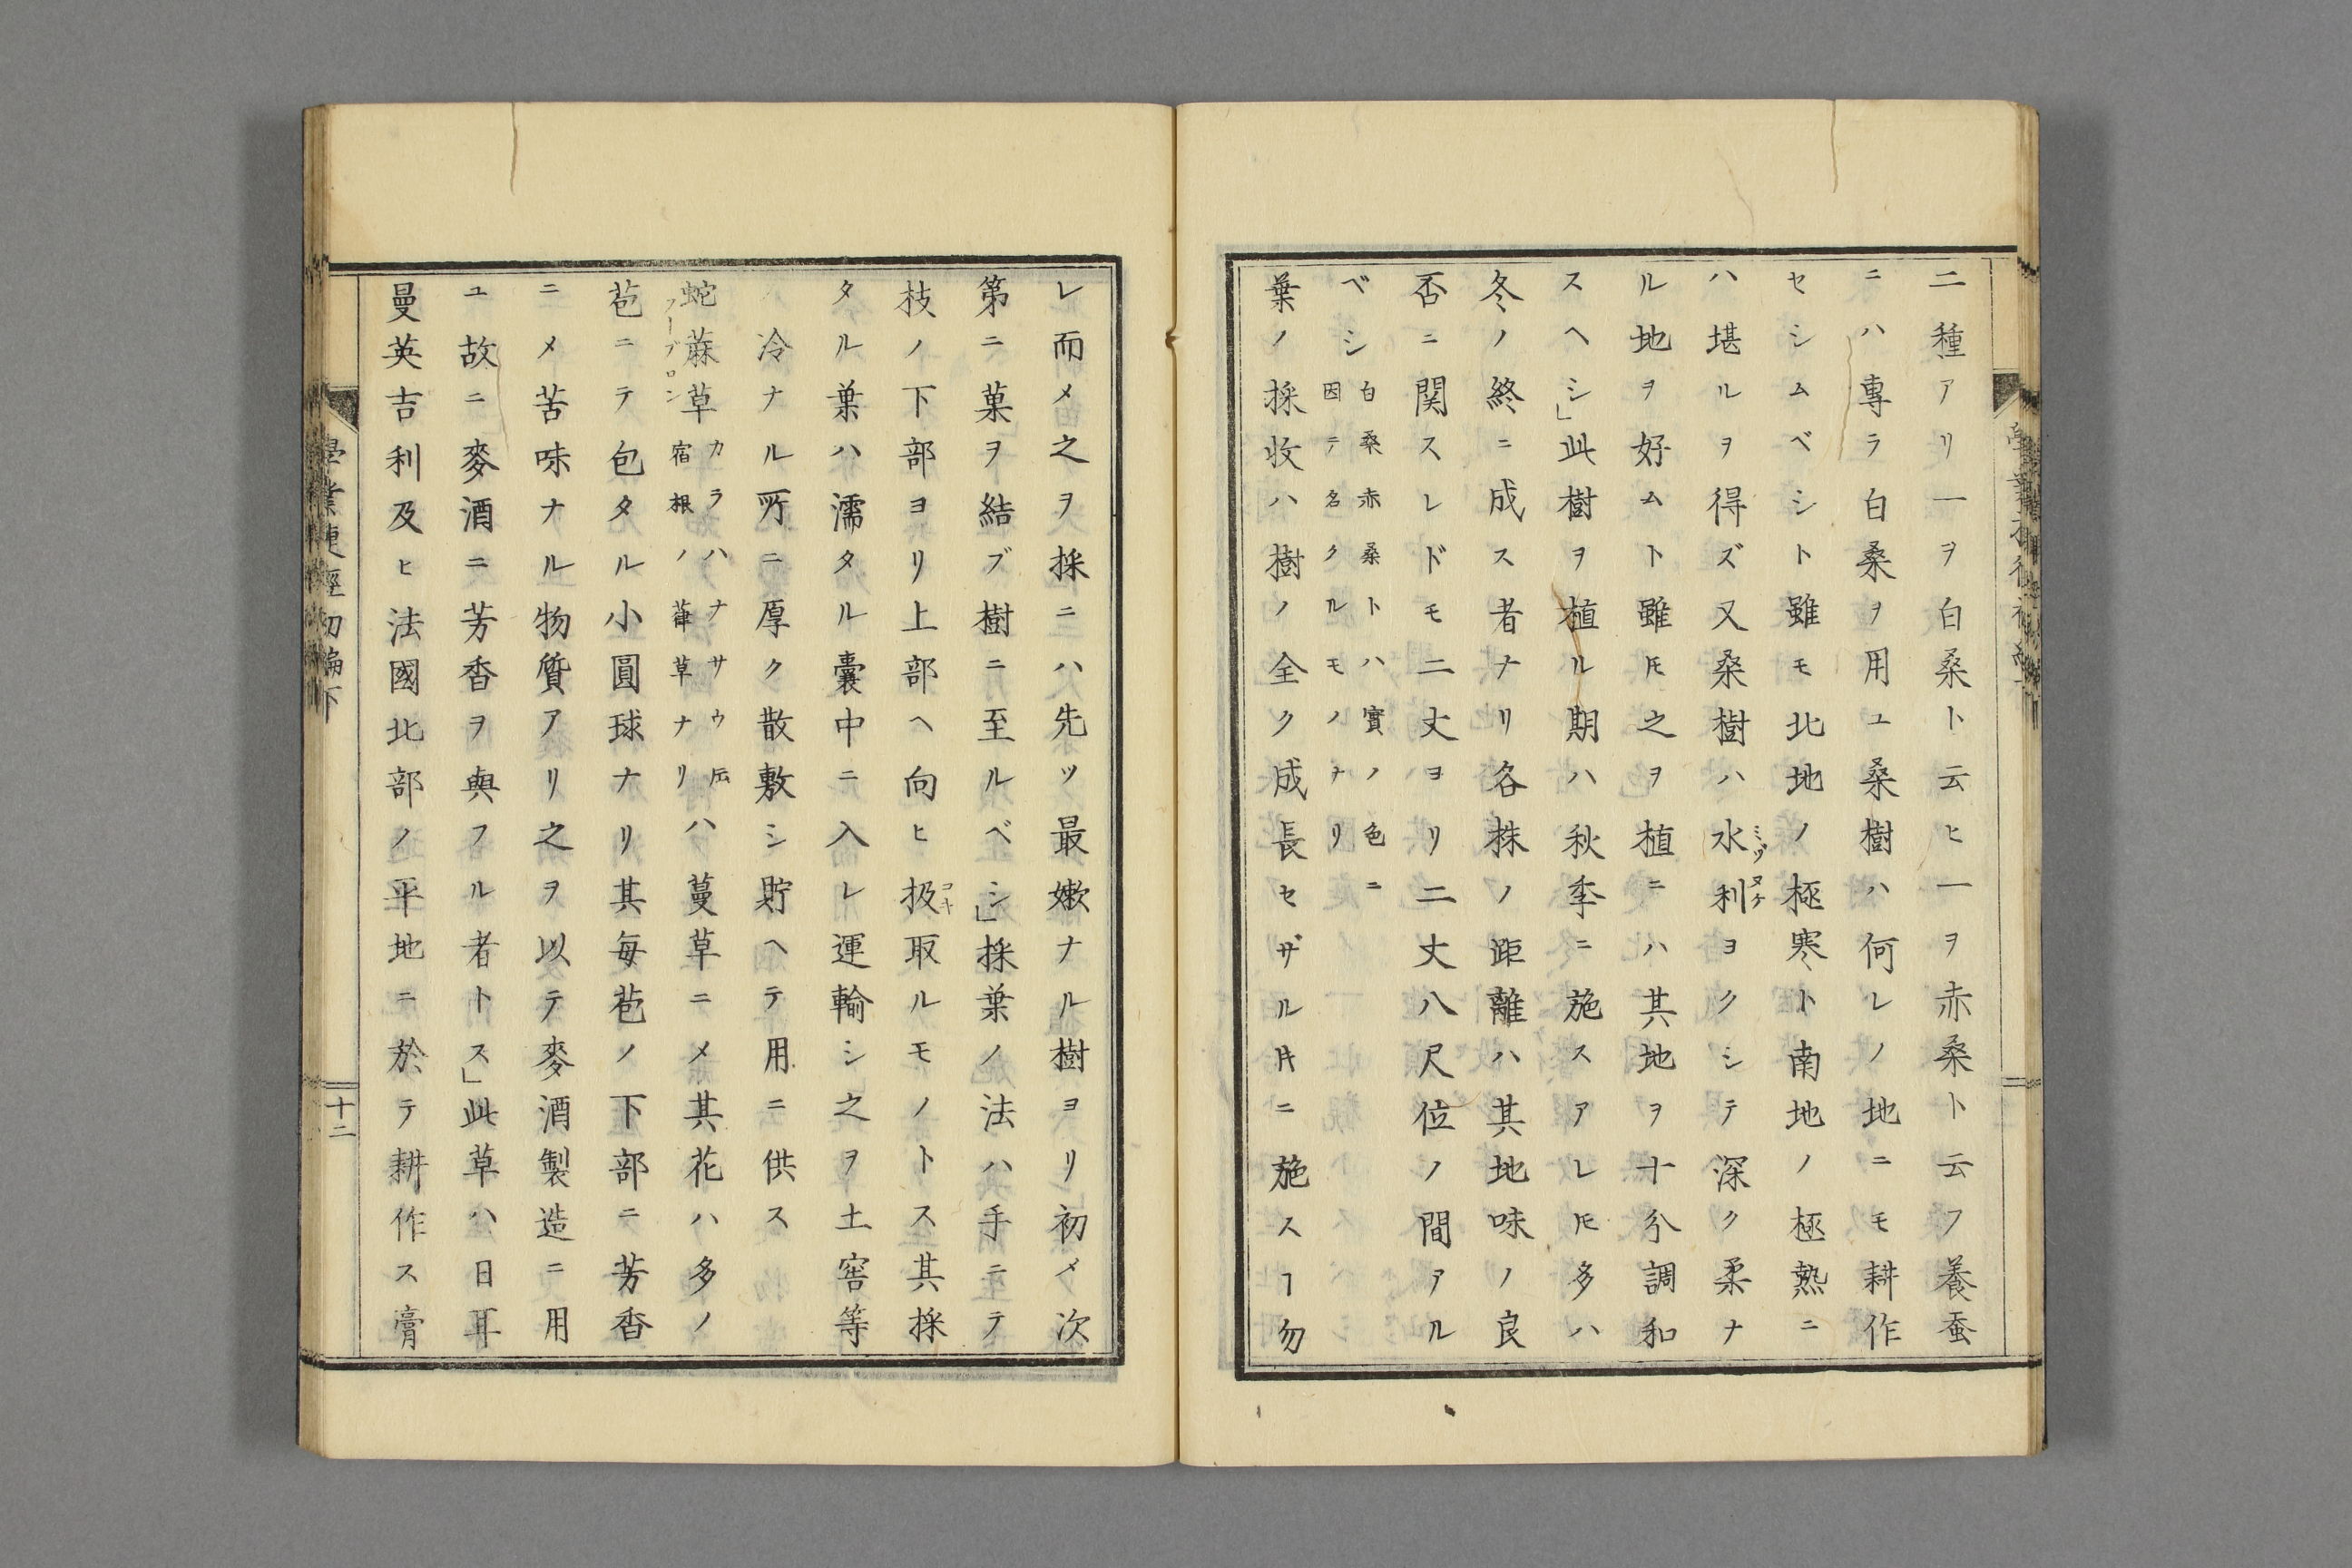 二種アリ一ヲ白桑ト云ヒ一ヲ赤桑ト云フ養蚕
ニハ專ラ白桑ヲ用ユ桑樹ハ何レノ地ニモ耕作
セシムベシト雖モ北地ノ極寒ト南地ノ極熱ニ
ハ堪ルヲ得ズ又桑樹ハ水利ヨクシテ深ク柔ナ
ミヅヌケ
ル地ヲ好ムト雖𪜈之ヲ植ニハ其地ヲ十分調和
スヘシ」此樹ヲ植ル期ハ秋季ニ施スアレ𪜈多ハ
冬ノ終ニ成ス者ナリ各株ノ距離ハ其地味ノ良
否ニ関スレドモ二丈ヨリ二丈八尺位ノ間アル
ベシ
白桑赤桑トハ實ノ色ニ
因テ名クルモノナリ
葉ノ採收ハ樹ノ全ク成長セザル𪜈ニ施スヿ勿
レ而メ之ヲ採ニハ先ツ最嫩ナル樹ヨリ初メ次
第ニ菓ヲ結ブ樹ニ至ルベシ」採葉ノ法ハ手ニテ
枝ノ下部ヨリ上部ヘ向ヒ扱取ルモノトス其採
コキ
タル葉ハ濡タル嚢中ニ入レ運輸シ之ヲ土窖等
冷ナル所ニ厚ク散敷シ貯ヘテ用ニ供ス
蛇蔴草
フーブロン
カラハナサウ
宿根ノ葎草ナリ
ハ蔓草ニメ其花ハ多ノ
苞ニテ包タル小圓球ナリ其每苞ノ下部ニ芳香
ニメ苦味ナル物質アリ之ヲ以テ麥酒製造ニ用
ユ故ニ麥酒ニ芳香ヲ與フル者トス」此草ハ日耳
曼英吉利及ヒ法國北部ノ平地ニ於テ耕作ス膏
十二